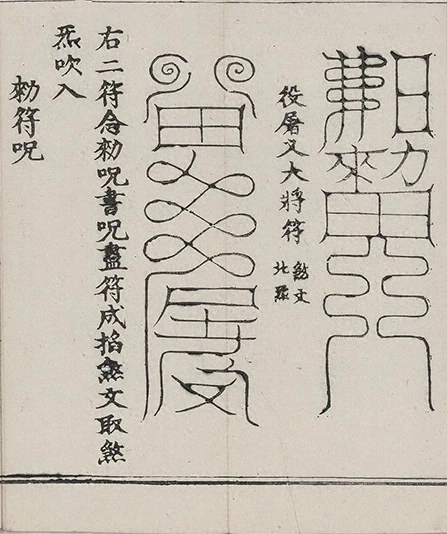 役屠叉大將符
煞文
北炁
右二符念勑呪書呪盡符成掐煞文取煞
炁吹入
勑符呪